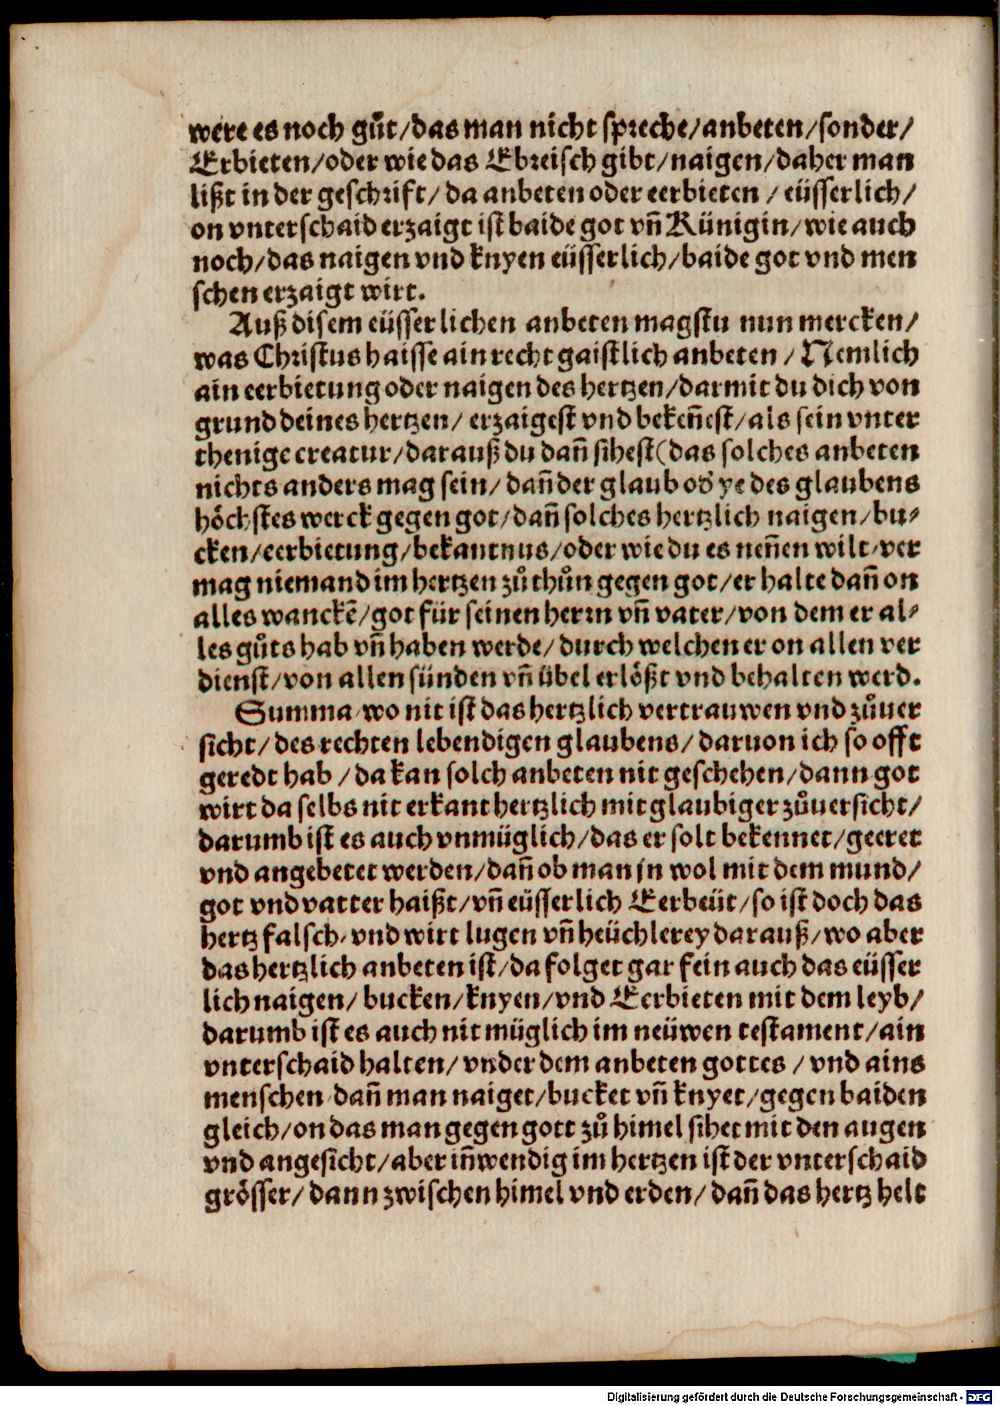 were es noch gůt/das man nicht spreche/anbeten/sonder/
Erbieten/oder wie das Ebreisch gibt/naigen/daher man
lißt in der geschrift/ da anbeten oder eerbieten / eüsserlich/
on vnterschaid erzaigt ist baide got vñ Künigin/wie auch
noch/das naigen vnd knyen eüsserlich/baide got vnd men
schen erzaigt wirt.
Auß disem eüsserlichen anbeten magstu nun mercken/
was Christus haisse ain recht gaistlich anbeten / Nemlich
ain eerbietung oder naigen des hertzen/darmit du dich von
grund deines hertzen/ erzaigest vnd bekeñest/als sein vnter
thenige creatur/darauß du dañ sihest(das solches anbeten
nichts anders mag sein/ dañ der glaub od' ye des glaubens
höchstes werck gegen got/dañ solches hertzlich naigen/bu⸗
cken/eerbietung/bekantnus/oder wie du es neñen wilt/ver
mag niemand im hertzen zů thůn gegen got/er halte dañ on
alles wanckē/got für seinen herrn vñ vater/von dem er al⸗
les gůts hab vñ haben werde/durch welchen er on allen ver
dienst/von allen sünden vñ übel erlößt vnd behalten werd.
Summa/wo nit ist das hertzlich vertrauwen vnd zůuer
sicht/des rechten lebendigen glaubens/daruon ich so offt
geredt hab /da kan solch anbeten nit geschehen/dann got
wirt da selbs nit erkant hertzlich mit glaubiger zůuersicht/
darumb ist es auch vnmüglich/das er solt bekennet/geeret
vnd angebetet werden/dañ ob man jn wol mit dem mund/
got vnd vatter haißt/vñ eüsserlich Eerbeüt/so ist doch das
hertz falsch/vnd wirt lugen vñ heüchlerey darauß/wo aber
das hertzlich anbeten ist/da folget gar fein auch das eüsser
lich naigen/ bucken/knyen/vnd Eerbieten mit dem leyb/
darumb ist es auch nit müglich im neüwen testament/ain
vnterschaid halten/vnder dem anbeten gottes / vnd ains
menschen/dañ man naiget/bucket vñ knyet/gegen baiden
gleich/on das man gegen gott zů himel sihet mit den augen
vnd angesicht/aber iñwendig im hertzen ist der vnterschaid
grösser/ dann zwischen himel vnd erden/dañ das hertz helt
Digitalisierung gefördert durch die Deutsche Forschungsgemeinschaft - DFG